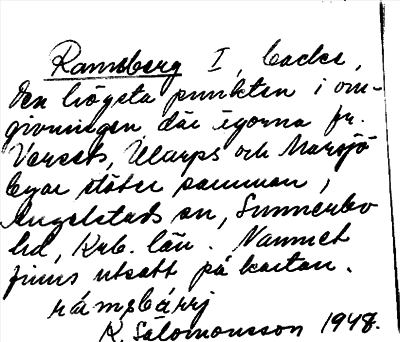 Ramsberg I, backe,
den högsta punkten i om-
givningen där ägorna fr.
Vareds, Ularps och Marsjö
byar stöter samman,
Angelstads sn, Sunnerbo
hd, Krb. län. Namnet
finns utsatt på kartan.
rámsbárrj
R. Salomonsson 1948.